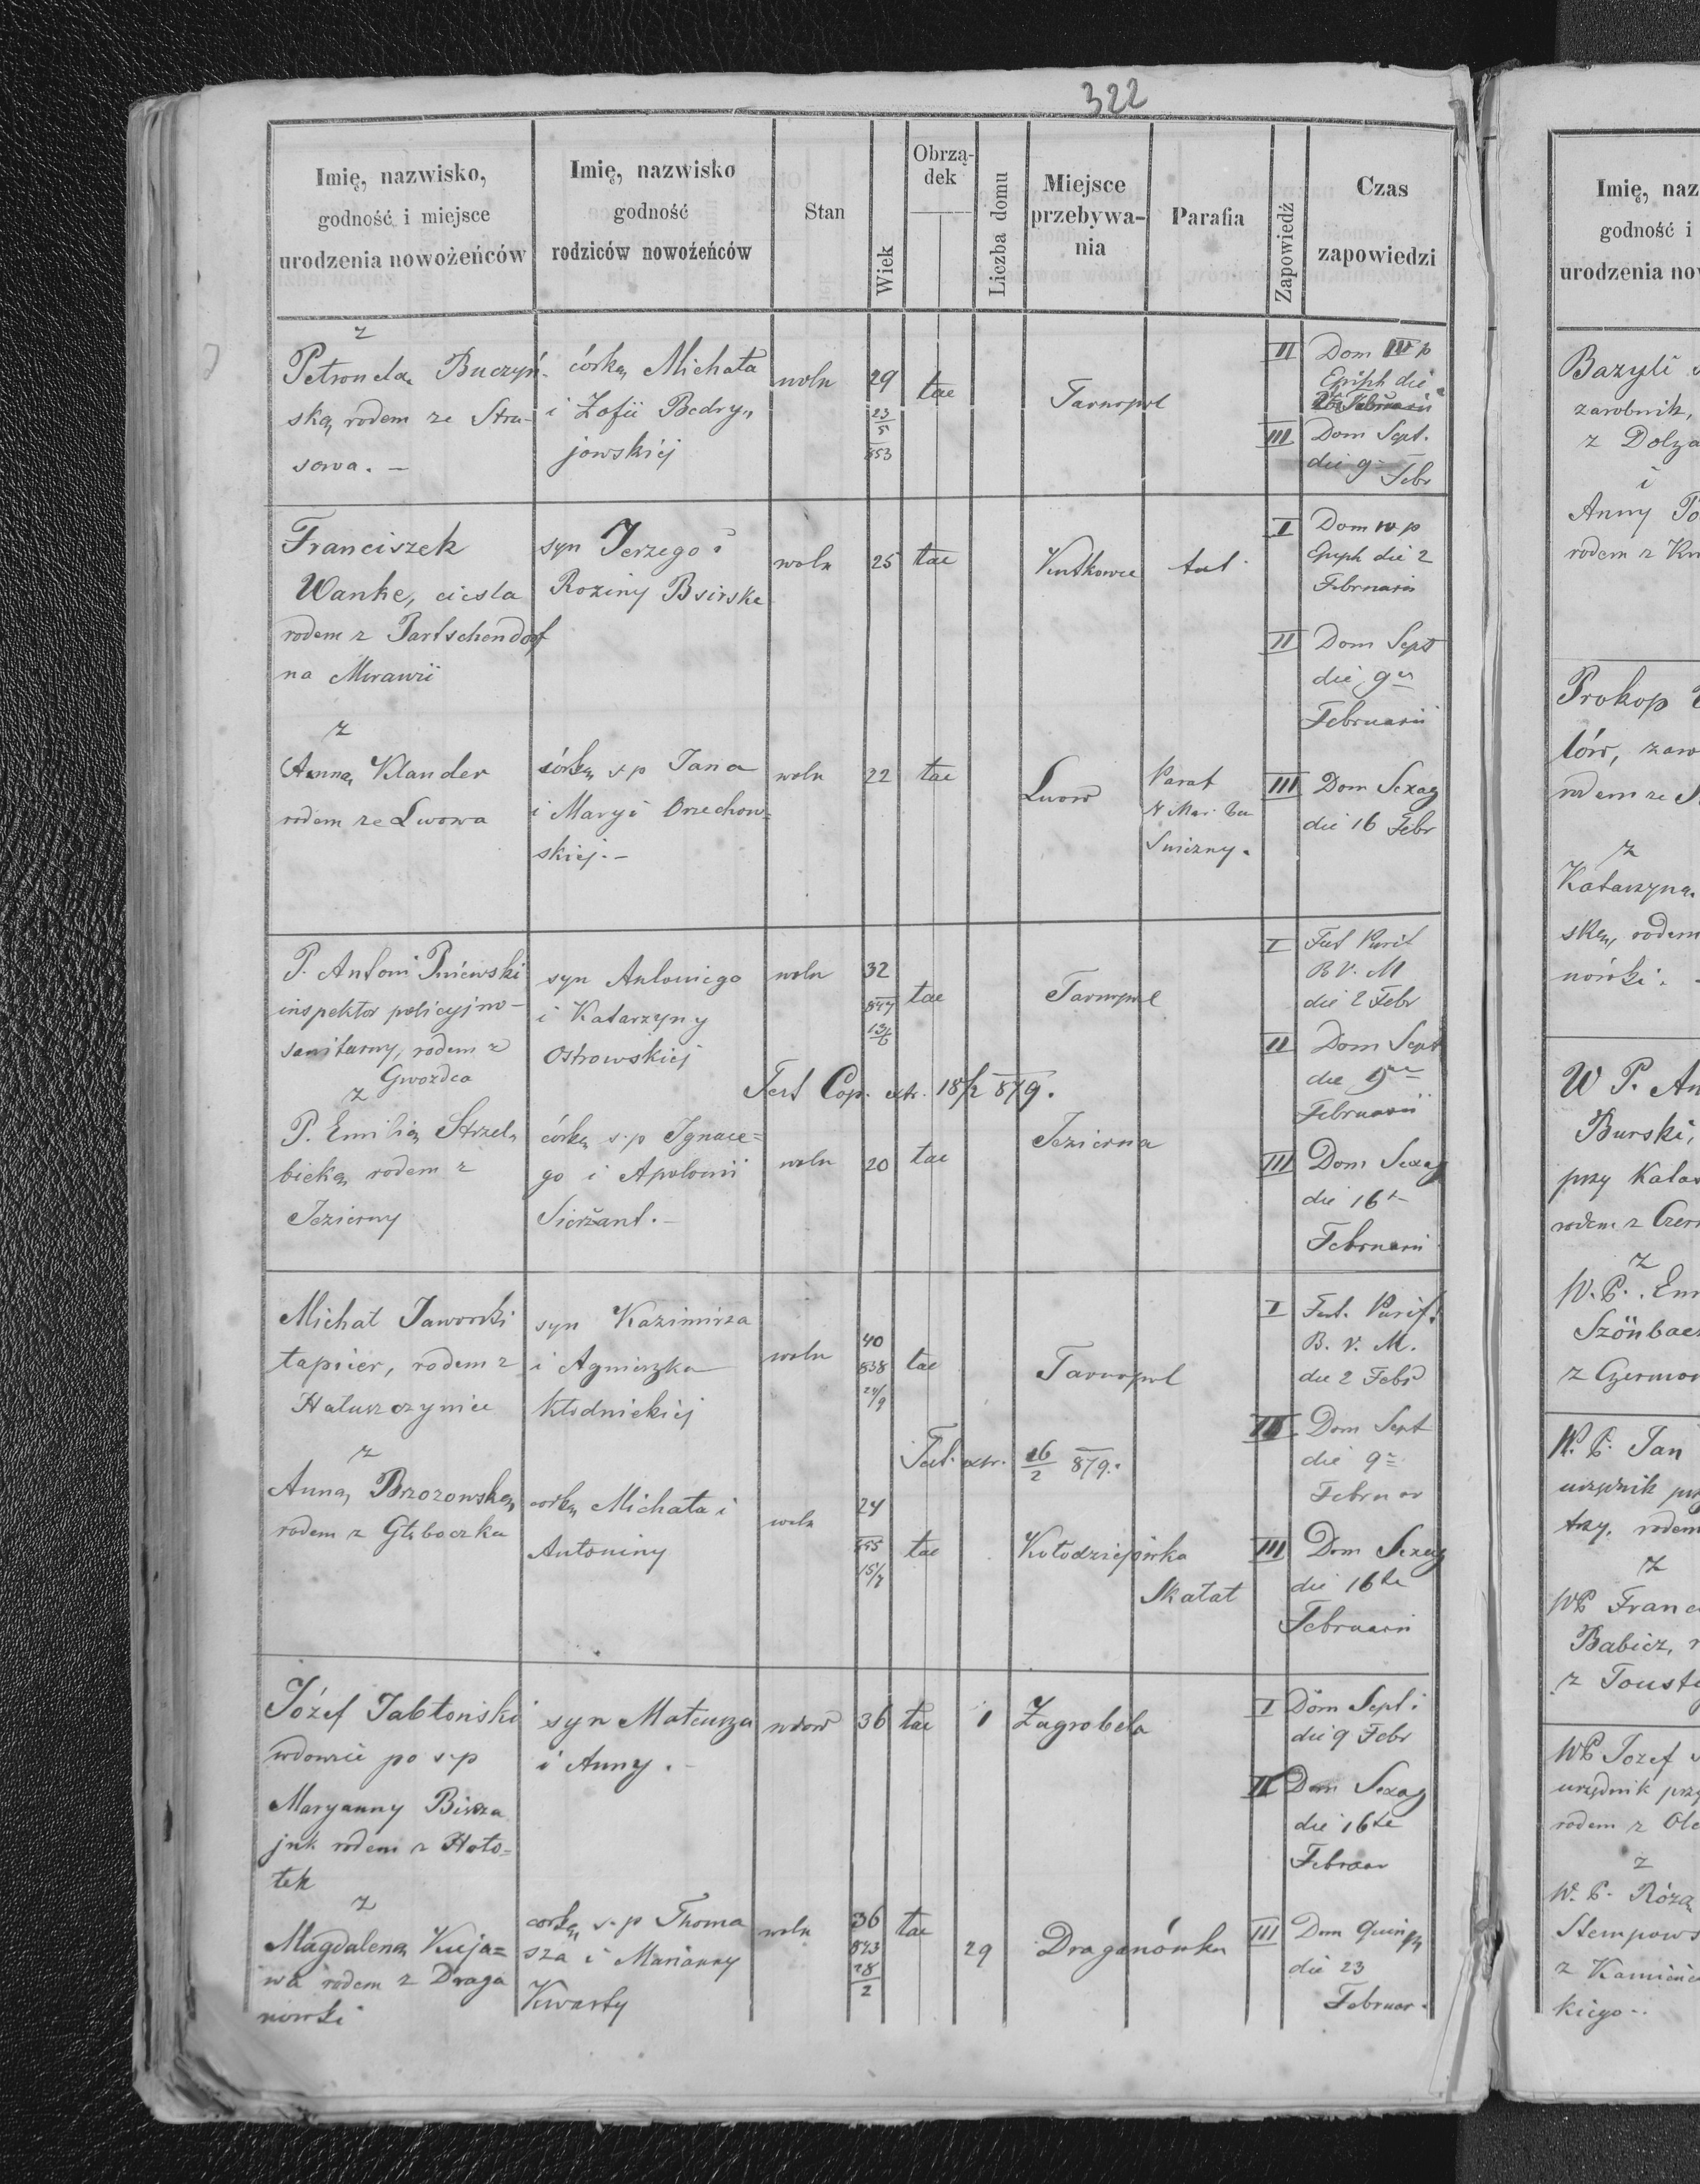 322
Imię, nazwisko,
godność i miejsce
urodzenia nowożeńców
Imię, nazwisko
godność
rodziców nowożeńców
Stan
Wiek
Obrzą-
dek
Liczba domu
Miejsce
przebywa-
nia
Parafia
Zapowiedź
Czas
zapowiedzi
z
Petronelą Buczyń-
ską rodem ze Stru-
sowa. —
córką Michała
i Zofii Bedry-
jowskiéj
woln
29
23
5
853
tae
Tarnopol
II
Dom IV p
Epiph die
Februarii
III
Dom Sept.
die 9
Febr
Franciszek
Wanke, ciesla
rodem z Partschendorf
na Morawii
syn Jerzego i
Roziny Bsirske
woln
25
tae
Kutkowce
tut
I
Dom IV p
Epiph die 2
Februarii
II
Dom Sept
die 9
Februarii
z
Anną Klander
rodem ze Lwowa
córką s.p Jana
i Maryi Orzechow=
skiej. —
woln
22
tae
Lwow
Parat
Sniezny.
III
Dom Sexag
die 16 Febr
P. Antoni Pniewski
inspektor policyjno-
sanitarny, rodem z
Gwozdca
syn Antoniego
i Katarzyny
Ostrowskiej
woln
32
847
13/6
tae
Tarnopol
I
Fest Purif
B V. M
die 2 Febr
II
Dom Sept
die 9
Februarii
Test Cop. extr. 18/2 879.
z
P. Emilią Strzel-
bicką rodem z
Jezierny
córką s.p Ignace=
go i Apolonii
Sierżant. —
woln
20
tae
Jezierna
III
Dom Sexag
die 16
Februarii
Michał Jaworski
tapicer, rodem z
Hałuszczyniec
syn Kazimirza
i Agnieszka
Kłodnickiéj
woln
40
838
24/9
tae
Tarnopol
I
Fest. Purif.
B. V. M.
die 2 Febr
II
Dom Sept
die 9
Februar
extr. 16/2 879.
z
Anną Brzozowską
rodem z Głęboczka
corką Michała i
Antoniny
woln
24
855
15/7
tae
Kołodziejówka
Skałat
III
Dom Sexag
die 16te
Februarii
Józef Jabłoński
wdowiec po s.p
Maryanny
juk rodem z Hoło=
tek
syn Mateusza
i Anny. —
wdow
36
tae
1
Zagrobela
I
Dom Sept
die 9 Febr
II
Dom Sexag
die 16te
Februar
z
Magdaleną Kuja=
wa rodem z Draga
nowki
corką s.p Thoma
sza i Marianny
Kwarty
woln
36
843
28
2
tae
29
Draganówka
III
Dom Quinq
die 23
Februar.
Imię, naz
godność i
urodzenia now
Bazyli
zarobnik,
z Dolza
i
Anny Po
rodem z
Prokop
łów, zaro
rodem ze S
z
Katarzyna
ską, rodem
nówki.
W P. An
Burski,
przy Katas
rodem z Czer
z
W. P. Em
Szönbae
z Czernow
W. P. Jan
urzędnik prz
try. rodem
z
WP Franc
Babicz, r
z Touste
WP Jozef
urzędnik przy
rodem z Ole
z
W. P. Różą
Stempows
z Kamieńca
kiego..